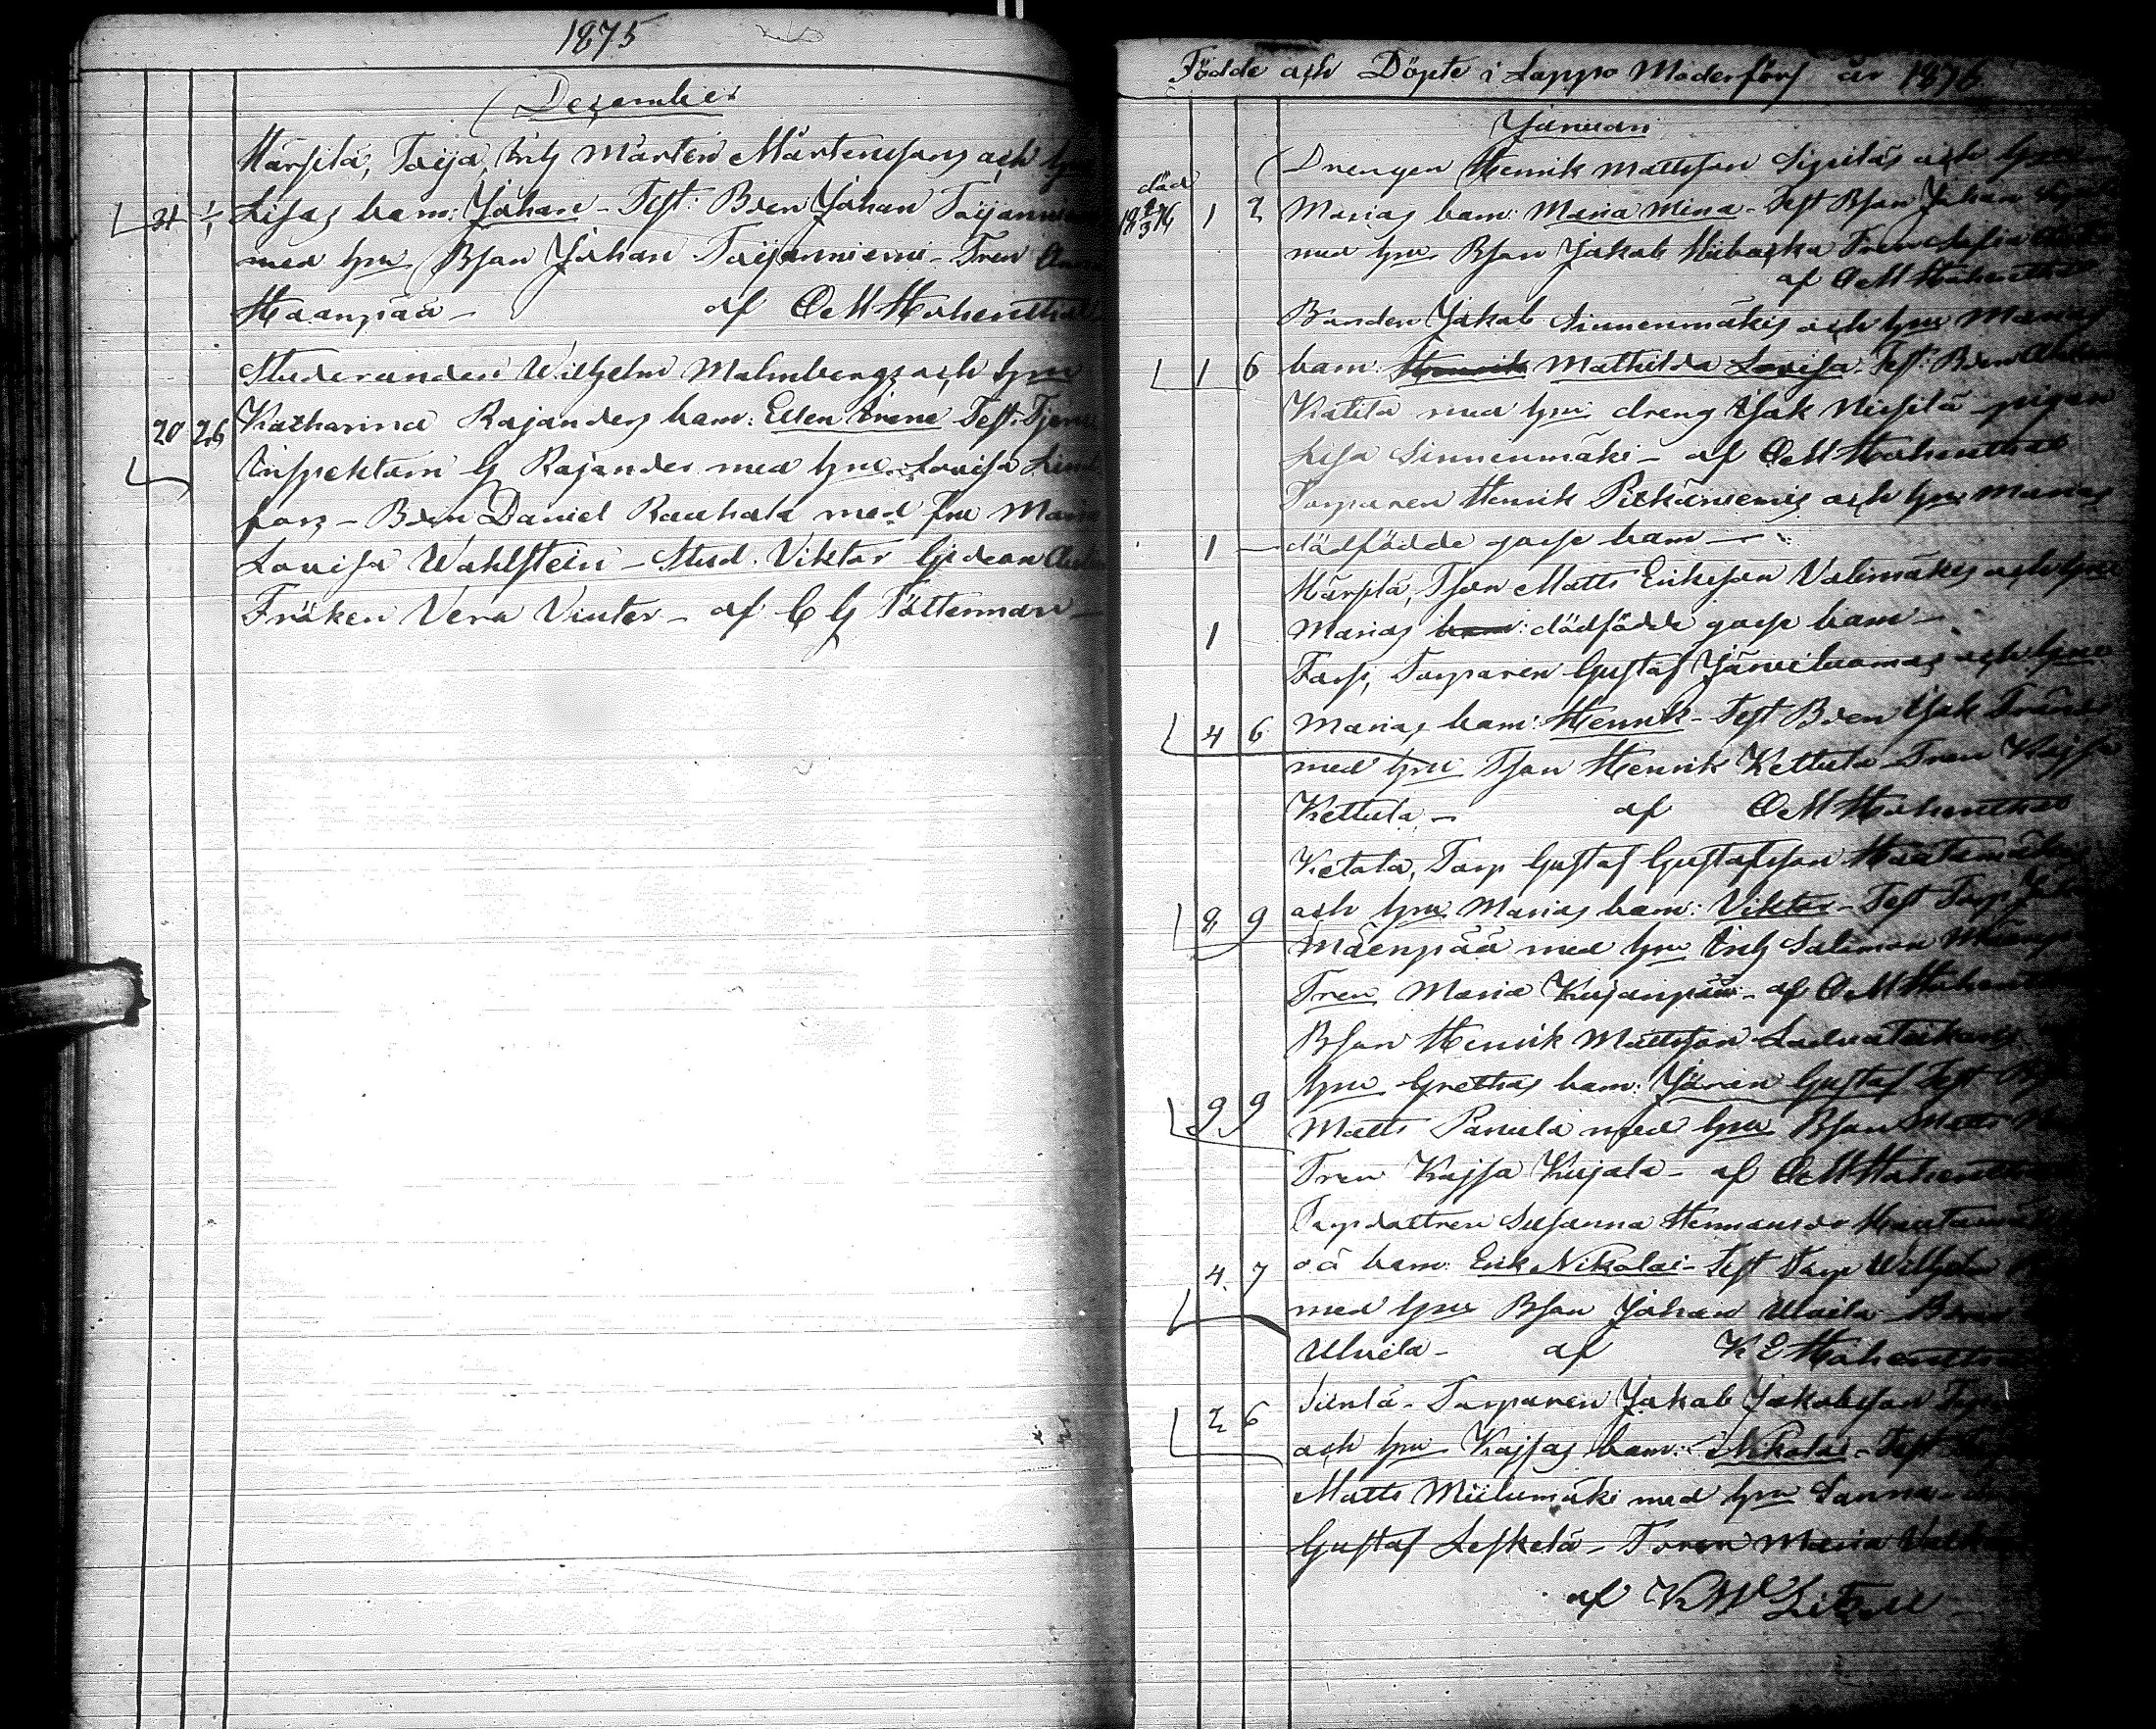 1875
Dezember
Härsilä, Taija, Inh Mårten Mårtenssons och hu
31 1/1 Lisas barn: Johan - Test: Bden Johan Taijanniemi
med hu Bson Johan Taijanniemi - Dren Anna
Haanpää - af O M Hohenthal
Studeranden Wilhelm Malmbergs och hu
20 26 Katharina Rajanders barn: Ellen Irene Test: Tjenst
Inspektorn G Rajander med hu Lovisa Lind
fors - Bden Daniel Rauhala med fru Maria
Lovisa Wahlstein - Stud. Viktor Gideon
Fröken Vera Vinter - af C G Tötterman -
Födde och Döpte i Lappo Moderförs år 1876
Januari
Drengen Henrik Mattsson Sipiläs och hu
död 18 3 76 1 2 Marias barn: Maria Mina - Test Bson Johan
med hu Bson Jakob Hiibacka Dren
af O M Hohenthal
Bonden Jakob Sinnenmäkis och hu Marias
1 6 barn: Henrik Mathilda Lovisa. Test: Bden
Kattila med hu dreng Isak Niesilä pigan
Lisa Sinnenmäki - af O M Hohenthal
Torparen Henrik Pitkäniemis och hu Marias
1 - dödfödde gosse barn -
Härsilä, Tson Matts Eriksson Valimäkis och hu
1 Marias barn: dödfödde gosse barn -
Torp, Torparen Gustaf Järviluomas och hu
4 6 Marias barn: Henrik - Test Bden Isak
med hu Tson Henrik Kettula Dren Kajsa
Kettula - af O M Hohenthal
Ketola, Torp Gustaf Gustafsson Hautamäkis
8 9 och hu Marias barn: Viktor - Test Torp
Mäenpää med hu Inh Salomon Mäenpää
Dren Maria Kujanpää - af O M Hohenthal
Bson Henrik Mattsson Ladvateikari
9 9 hu Grethas barn: Jöran Gustaf Test
Matts Panula med hu Bson Matts
Dren Kajsa Kujala - af O M Hohenthal
Torpdottren Susanna Hermansdr Hautamäki
4 7 oä barn: Erik Nikolai - Test Torp Wilhelm
med hu Bson Johan Ulvila
Ulvila - af K E Hohenthal
2 6 Siirilä - Torparen Jakob Jakobsson
och hu Kajsas barn: Nikolai - Test
Matts Miilumäki med hu Sanna -
Gustaf Leskelä - Maria
af K W Litzell -